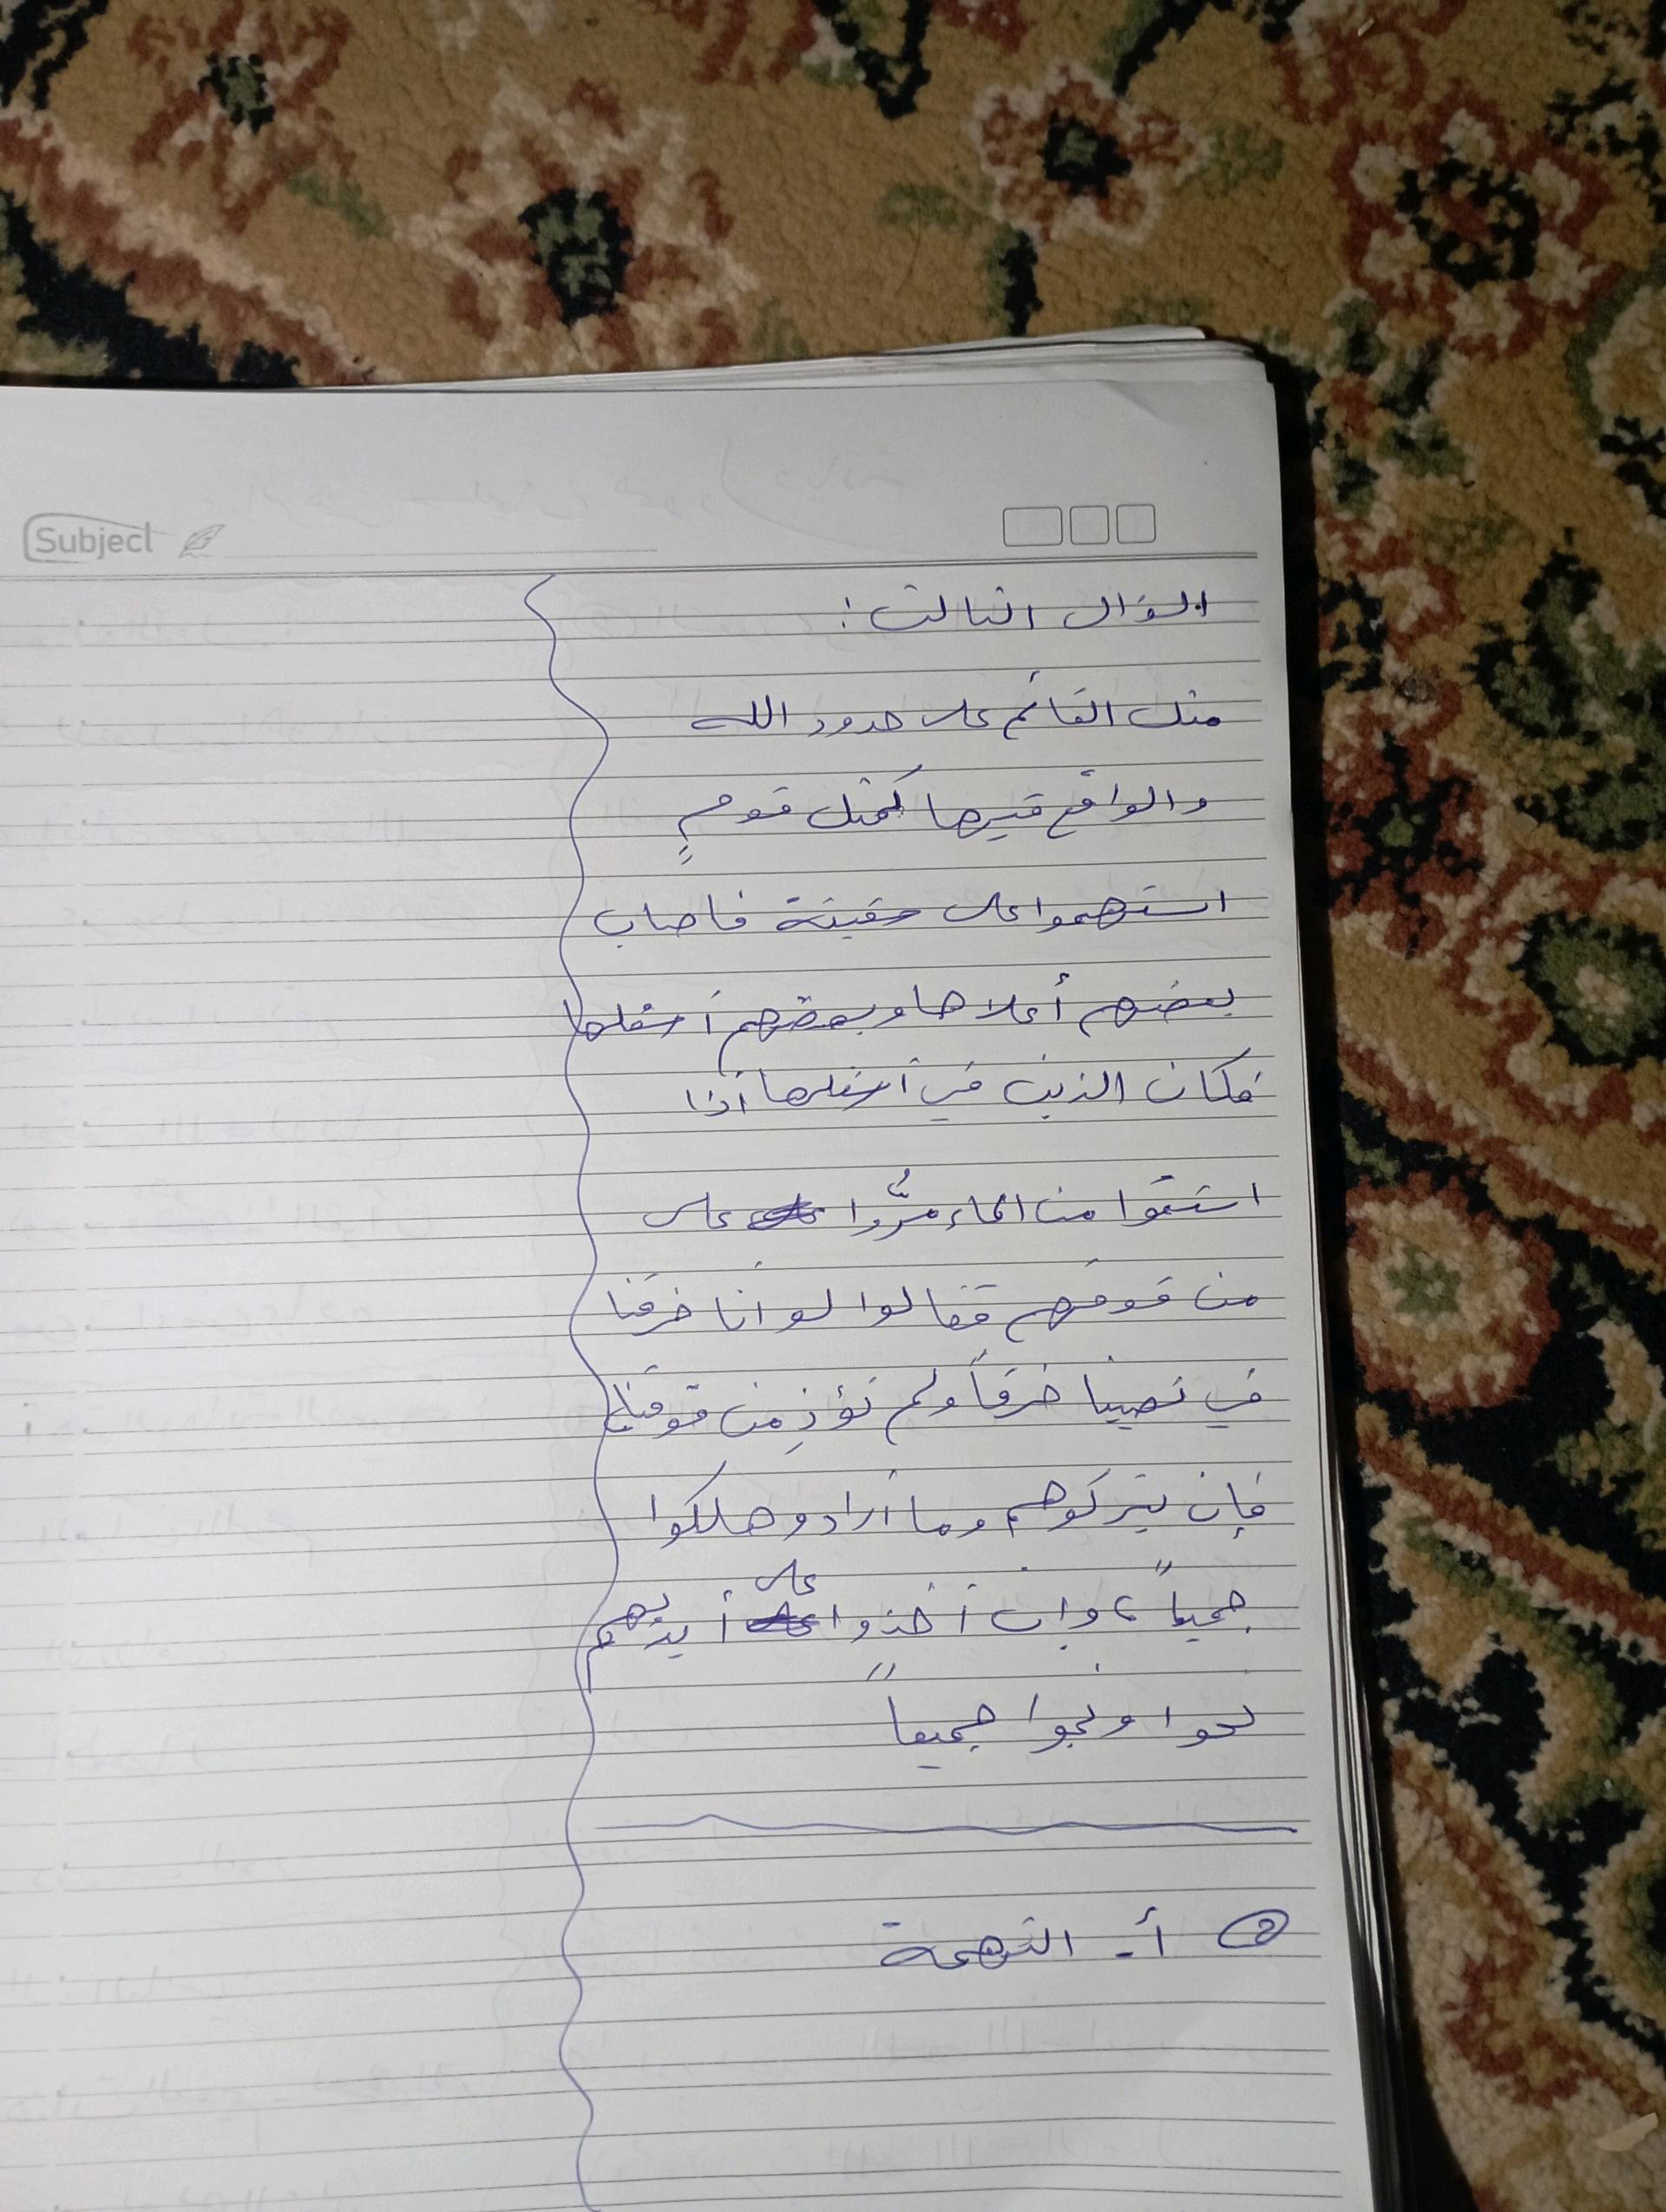 Subject
السؤال الثالث:
مثل القائم على حدود الله
والواقع فيها كمثل قومٍ
استهموا على سفينة فأصاب
بعضهم أعلاها وبعضهم أسفلها
فكان الذين في أسفلها اذا
استقوا من الماء مرُّوا على
من فوقهم فقالوا لو أنا خرقنا
في نصيبنا خرقاً ولم نؤذِ من فوقنا
فإن يتركوهم وما أرادو هلكوا
جميعاً، وإن أخذوا على أيديهم
نجوا ونجوا جميعاً
② أ- التهمة